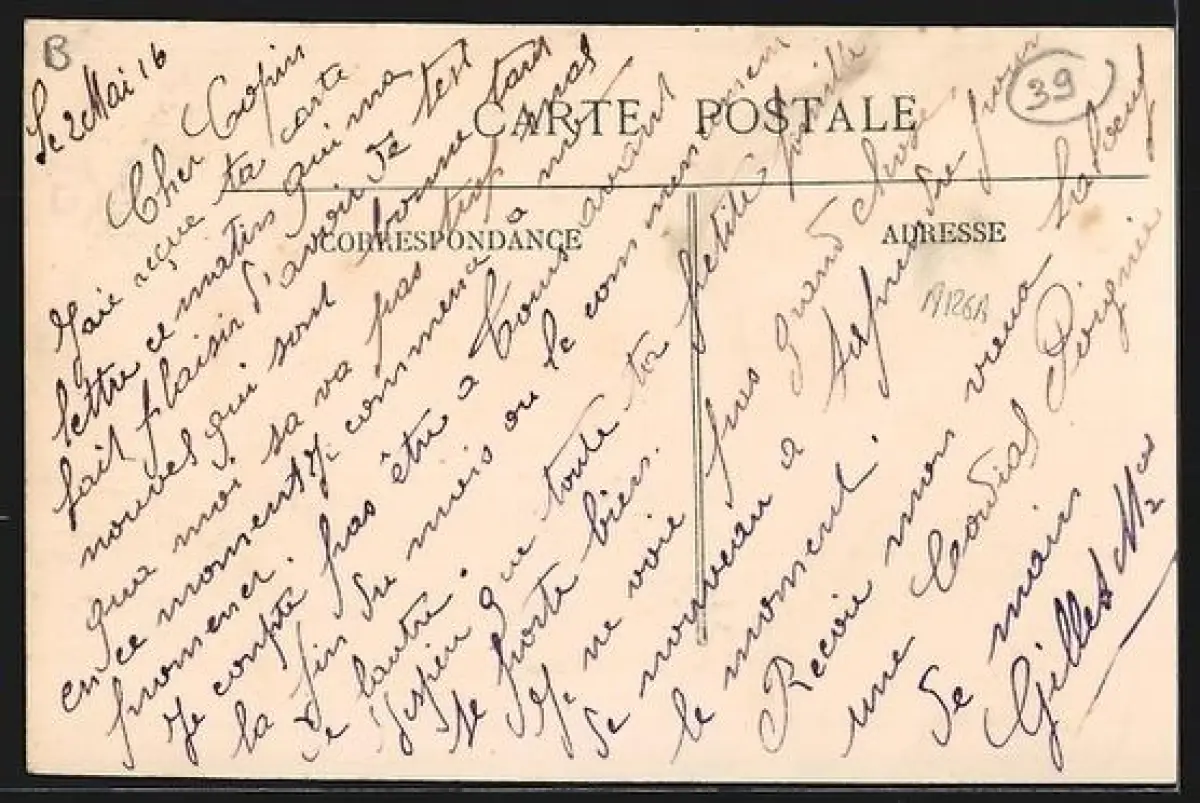 B
39
CARTE POSTALE
CORRESPONDANCE
ADRESSE
A126A
Le 2 Mai 16
Cher Copin
J'aie reçue ta carte
lettre ce matin qui ma
fait plaisir d'avoir de tes
nouvel qui sont bonne tans
qua moi sa va pas trop mal
en ce moment Je commence à me
promener.
Je compte pas être a Tours avant
la fin du mois ou le commencemen
de lautre.
J'espère que toute ta petite famille
se porte bien.
Je ne voie pas grand chose
de nouveau a t'aprendre pour
le moment.
Recoie mon vieux
une Cordial Poignée
de main
Gilles M